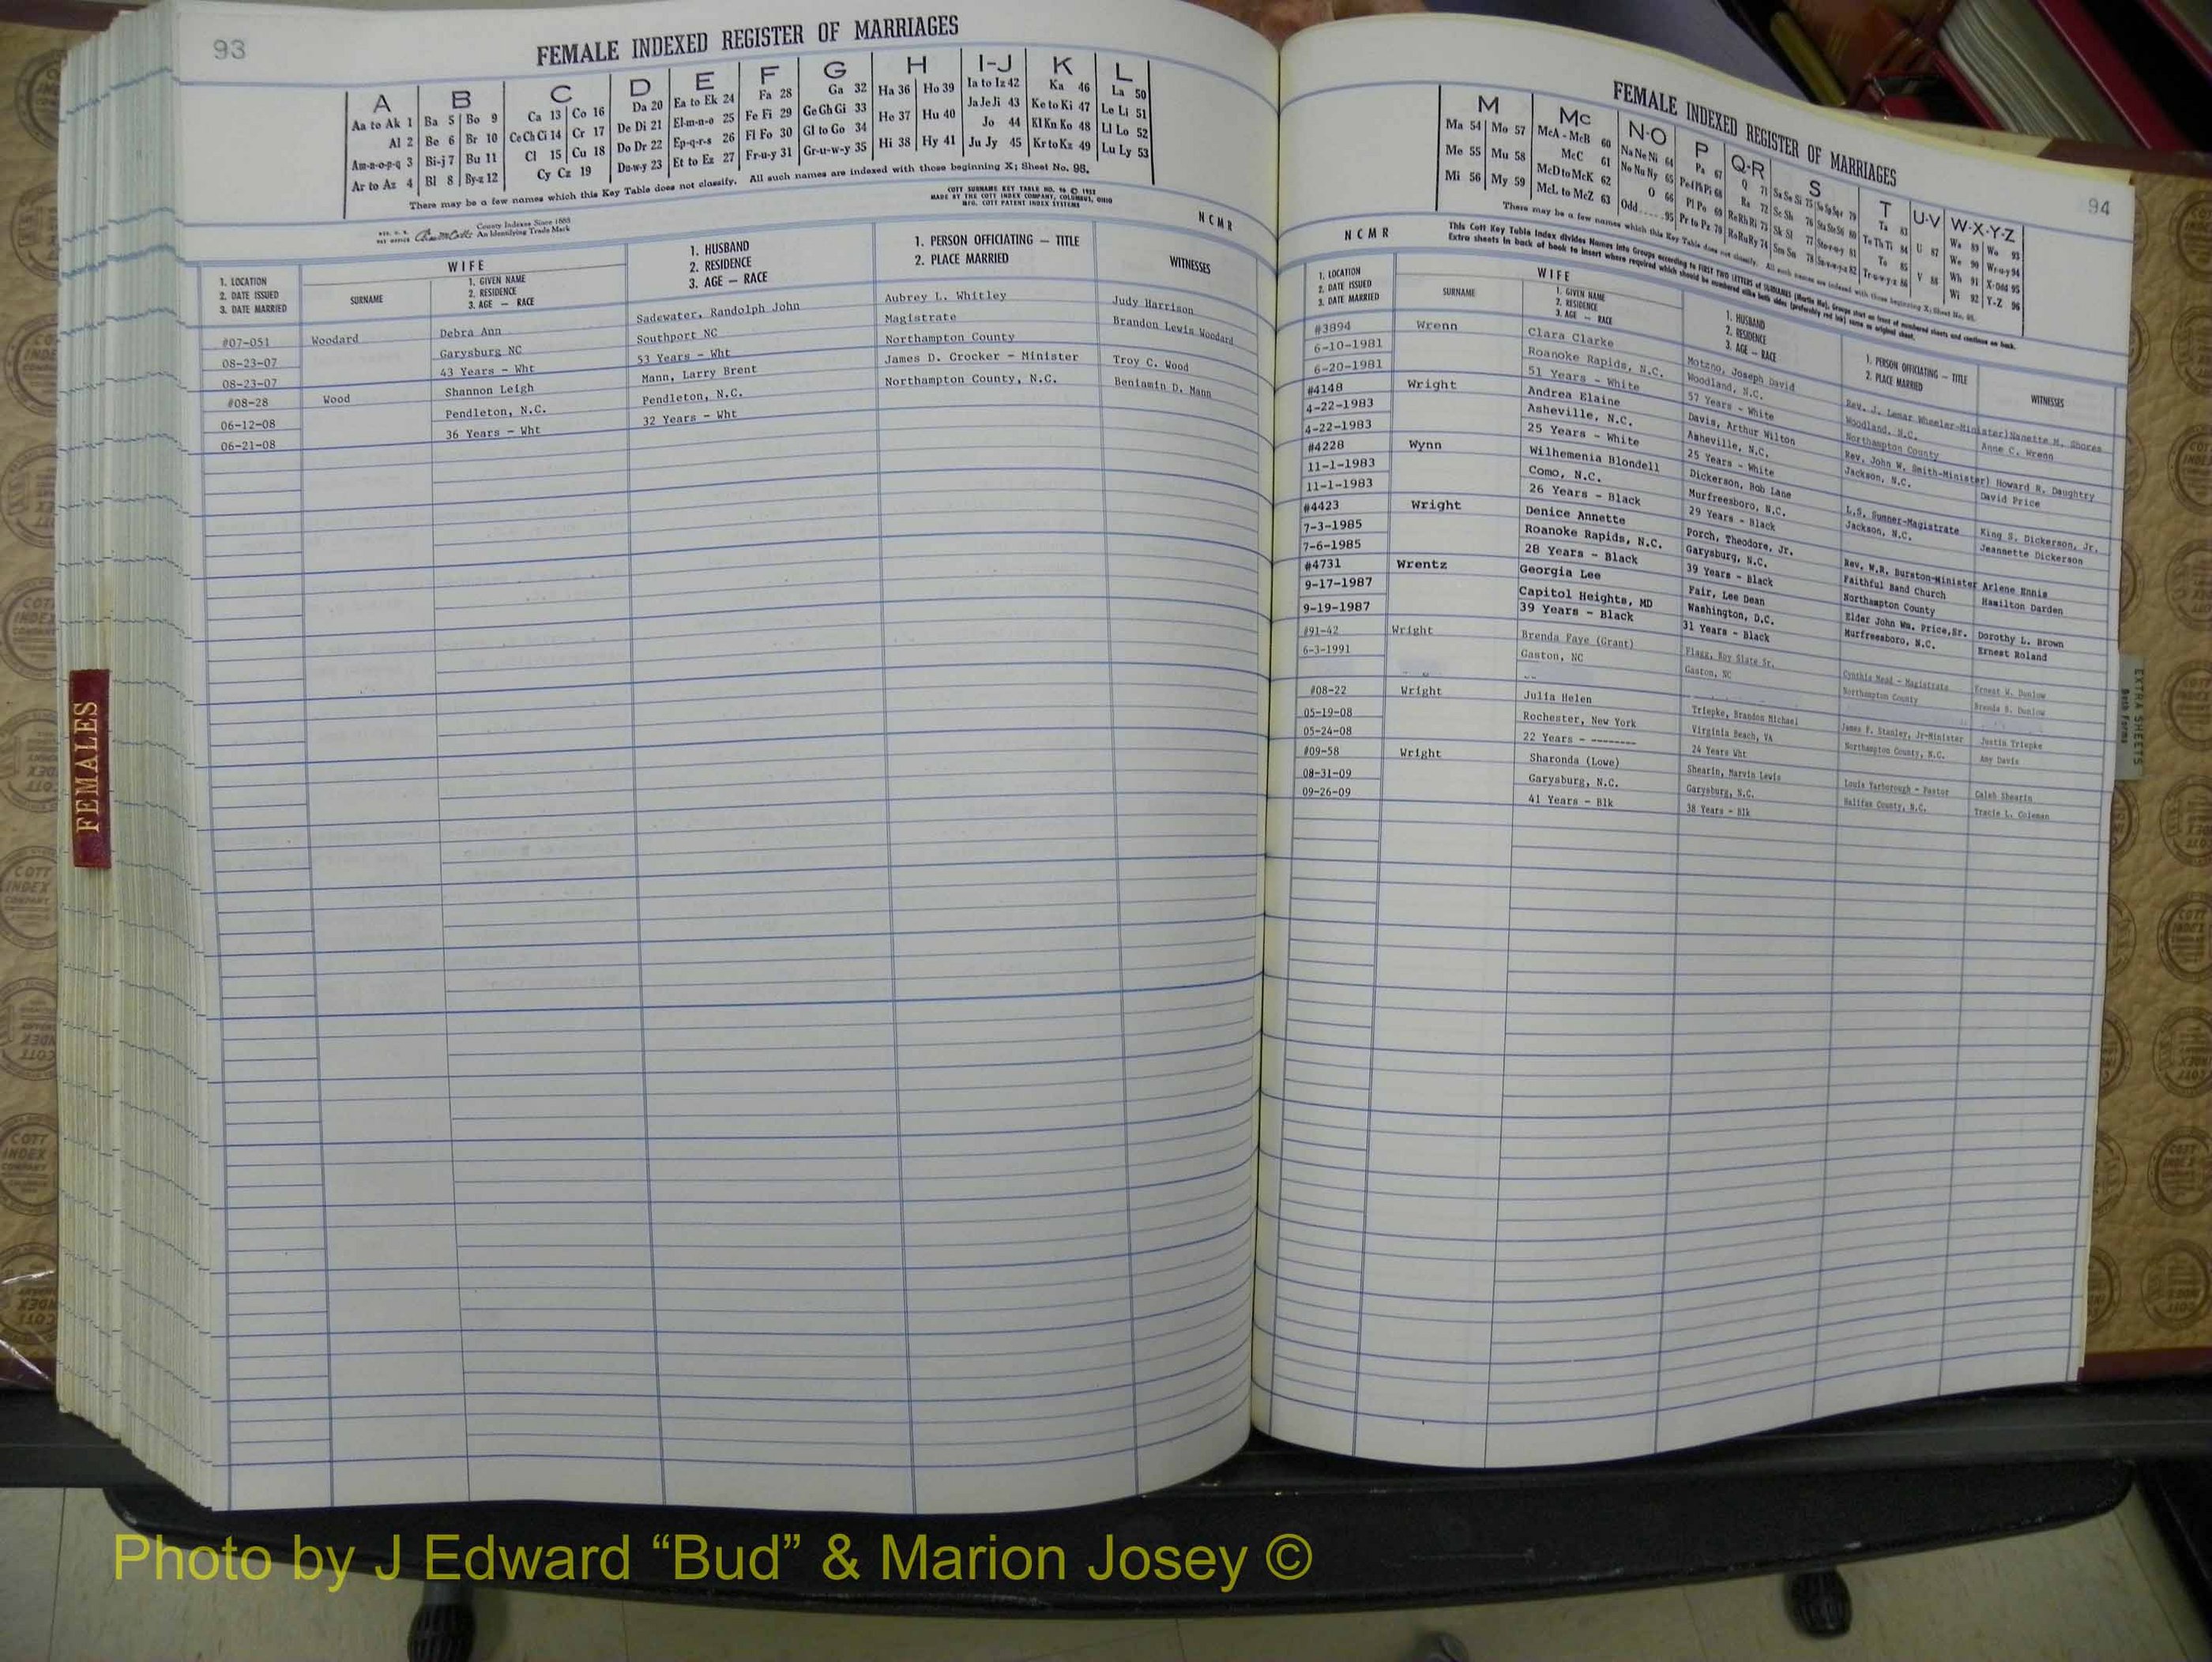 93
FEMALE INDEXED REGISTER OF MARRIAGES
A B C D E F G H I-J K L
Aa to Ak 1 Ba 5 Bo 9 Ca 13 Co 16 Da 20 Ea to Ek 24 Fa 28 Ga 32 Ha 36 Ho 39 Ia to Iz 42 Ka 46 La 50
Al 2 Be 6 Br 10 Ce Ch Ci 14 Cr 17 De Di 21 El-m-n-o 25 Fe Fi 29 Ge Gh Gi 33 He 37 Hu 40 Ja Je Ji 43 Ke to Ki 47 Le Li 51
Am-n-o-p-q 3 Bi-j 7 Bu 11 Cl 15 Cu 18 Do Dr 22 Ep-q-r-s 26 Fl Fo 30 Gl to Go 34 Hi 38 Hy 41 Jo 44 Kl Kn Ko 48 Ll Lo 52
Ar to Az 4 Bl 8 By-z 12 Cy Cz 19 Du-w-y 23 Et to Ez 27 Fr-u-y 31 Gr-u-w-y 35 Ju Jy 45 Kr to Kz 49 Lu Ly 53
There may be a few names which this Key Table does not classify. All such names are indexed with those beginning X; Sheet No. 95.
County Indexes Since 1888
An Identifying Trade Mark
MADE BY THE COTT INDEX COMPANY, COLUMBUS, OHIO
MFG. COTT PATENT INDEX SYSTEMS
N C M R
1. LOCATION
2. DATE ISSUED
3. DATE MARRIED
WIFE
SURNAME
1. GIVEN NAME
2. RESIDENCE
3. AGE — RACE
1. HUSBAND
2. RESIDENCE
3. AGE — RACE
1. PERSON OFFICIATING — TITLE
2. PLACE MARRIED
WITNESSES
#07-051 Woodard Debra Ann Sadewater, Randolph John Aubrey L. Whitley Judy Harrison
08-23-07 Garysburg NC Southport NC Magistrate Brandon Lewis Woodard
08-23-07 43 Years - Wht 53 Years - Wht Northampton County
#08-28 Wood Shannon Leigh Mann, Larry Brent James D. Crocker - Minister Troy C. Wood
06-12-08 Pendleton, N.C. Pendleton, N.C. Northampton County, N.C. Benjamin D. Mann
06-21-08 36 Years - Wht 32 Years - Wht
FEMALES
94
FEMALE INDEXED REGISTER OF MARRIAGES
M Mc N-O P Q-R S T U-V W-X-Y-Z
Ma 54 Mo 57 McA - McB 60 Na Ne Ni 64 Pa 67 Q 71
Me 55 Mu 58 McC 61 No Nu Ny 65 Pe Ph Pi 68 Ra 72
Mi 56 My 59 McD to McK 62 O 66 Pl Po 69 Re Rh Ri 73
McL to McZ 63 Odd 95 Pr to Pz 70 Ro Ru Ry 74
Ta 83 Te Th Ti 84 To 85 Tr-u-w-y-z 86
U 87 V 88
Wa 89 We 90 Wh 91 Wi 92 Wo 93 Wr-u-y 94 X-Odd 95 Y-Z 96
There may be a few names which this Key Table does not classify. All such names are indexed with those beginning X; Sheet No. 95.
This Cott Key Table Index divides Names into Groups according to FIRST TWO LETTERS of SURNAMES (Martin Ma). Groups start on front of numbered sheets and continue on back.
Extra sheets in back of book to insert where required which should be numbered alike both sides (preferably red ink) same as original sheet.
N C M R
1. LOCATION
2. DATE ISSUED
3. DATE MARRIED
WIFE
SURNAME
1. GIVEN NAME
2. RESIDENCE
3. AGE — RACE
1. HUSBAND
2. RESIDENCE
3. AGE — RACE
1. PERSON OFFICIATING — TITLE
2. PLACE MARRIED
WITNESSES
#3894 Wrenn Clara Clarke Motzno, Joseph David Rev. J. Lemar Wheeler-Minister Nanette M. Shores
6-10-1981 Roanoke Rapids, N.C. Woodland, N.C. Woodland, N.C. Anne C. Wrenn
6-20-1981 51 Years - White 57 Years - White Northampton County
#4148 Wright Andrea Elaine Davis, Arthur Wilton Rev. John W. Smith-Minister Howard R. Daughtry
4-22-1983 Asheville, N.C. Asheville, N.C. Jackson, N.C. David Price
4-22-1983 25 Years - White 25 Years - White
#4228 Wynn Wilhemenia Blondell Dickerson, Bob Lane L.S. Sumner-Magistrate King S. Dickerson, Jr.
11-1-1983 Como, N.C. Murfreesboro, N.C. Jackson, N.C. Jeannette Dickerson
11-1-1983 26 Years - Black 29 Years - Black
#4423 Wright Denice Annette Porch, Theodore, Jr. Rev. W.R. Burston-Minister Arlene Ennis
7-3-1985 Roanoke Rapids, N.C. Garysburg, N.C. Faithful Band Church Hamilton Darden
7-6-1985 28 Years - Black 39 Years - Black Northampton County
#4731 Wrentz Georgia Lee Fair, Lee Dean Elder John Wm. Price,Sr. Dorothy L. Brown
9-17-1987 Capitol Heights, MD Washington, D.C. Murfreesboro, N.C. Ernest Roland
9-19-1987 39 Years - Black 31 Years - Black
#91-42 Wright Brenda Faye (Grant) Flagg, Roy Slate Sr. Cynthia Neal - Magistrate Ernest W. Dunlow
6-3-1991 Gaston, NC Gaston, NC Northampton County Brenda B. Dunlow
#08-22 Wright Julia Helen Triepke, Brandon Michael James F. Stanley, Jr-Minister Justin Triepke
05-19-08 Rochester, New York Virginia Beach, VA Northampton County, N.C. Amy Davis
05-24-08 22 Years - -------- 24 Years Wht
#09-58 Wright Sharonda (Lowe) Shearin, Marvin Lewis Louis Yarborough - Pastor Caleb Shearin
08-31-09 Garysburg, N.C. Garysburg, N.C. Halifax County, N.C. Tracie L. Coleman
09-26-09 41 Years - Blk 38 Years - Blk
EXTRA SHEETS
Photo by J Edward “Bud” & Marion Josey ©